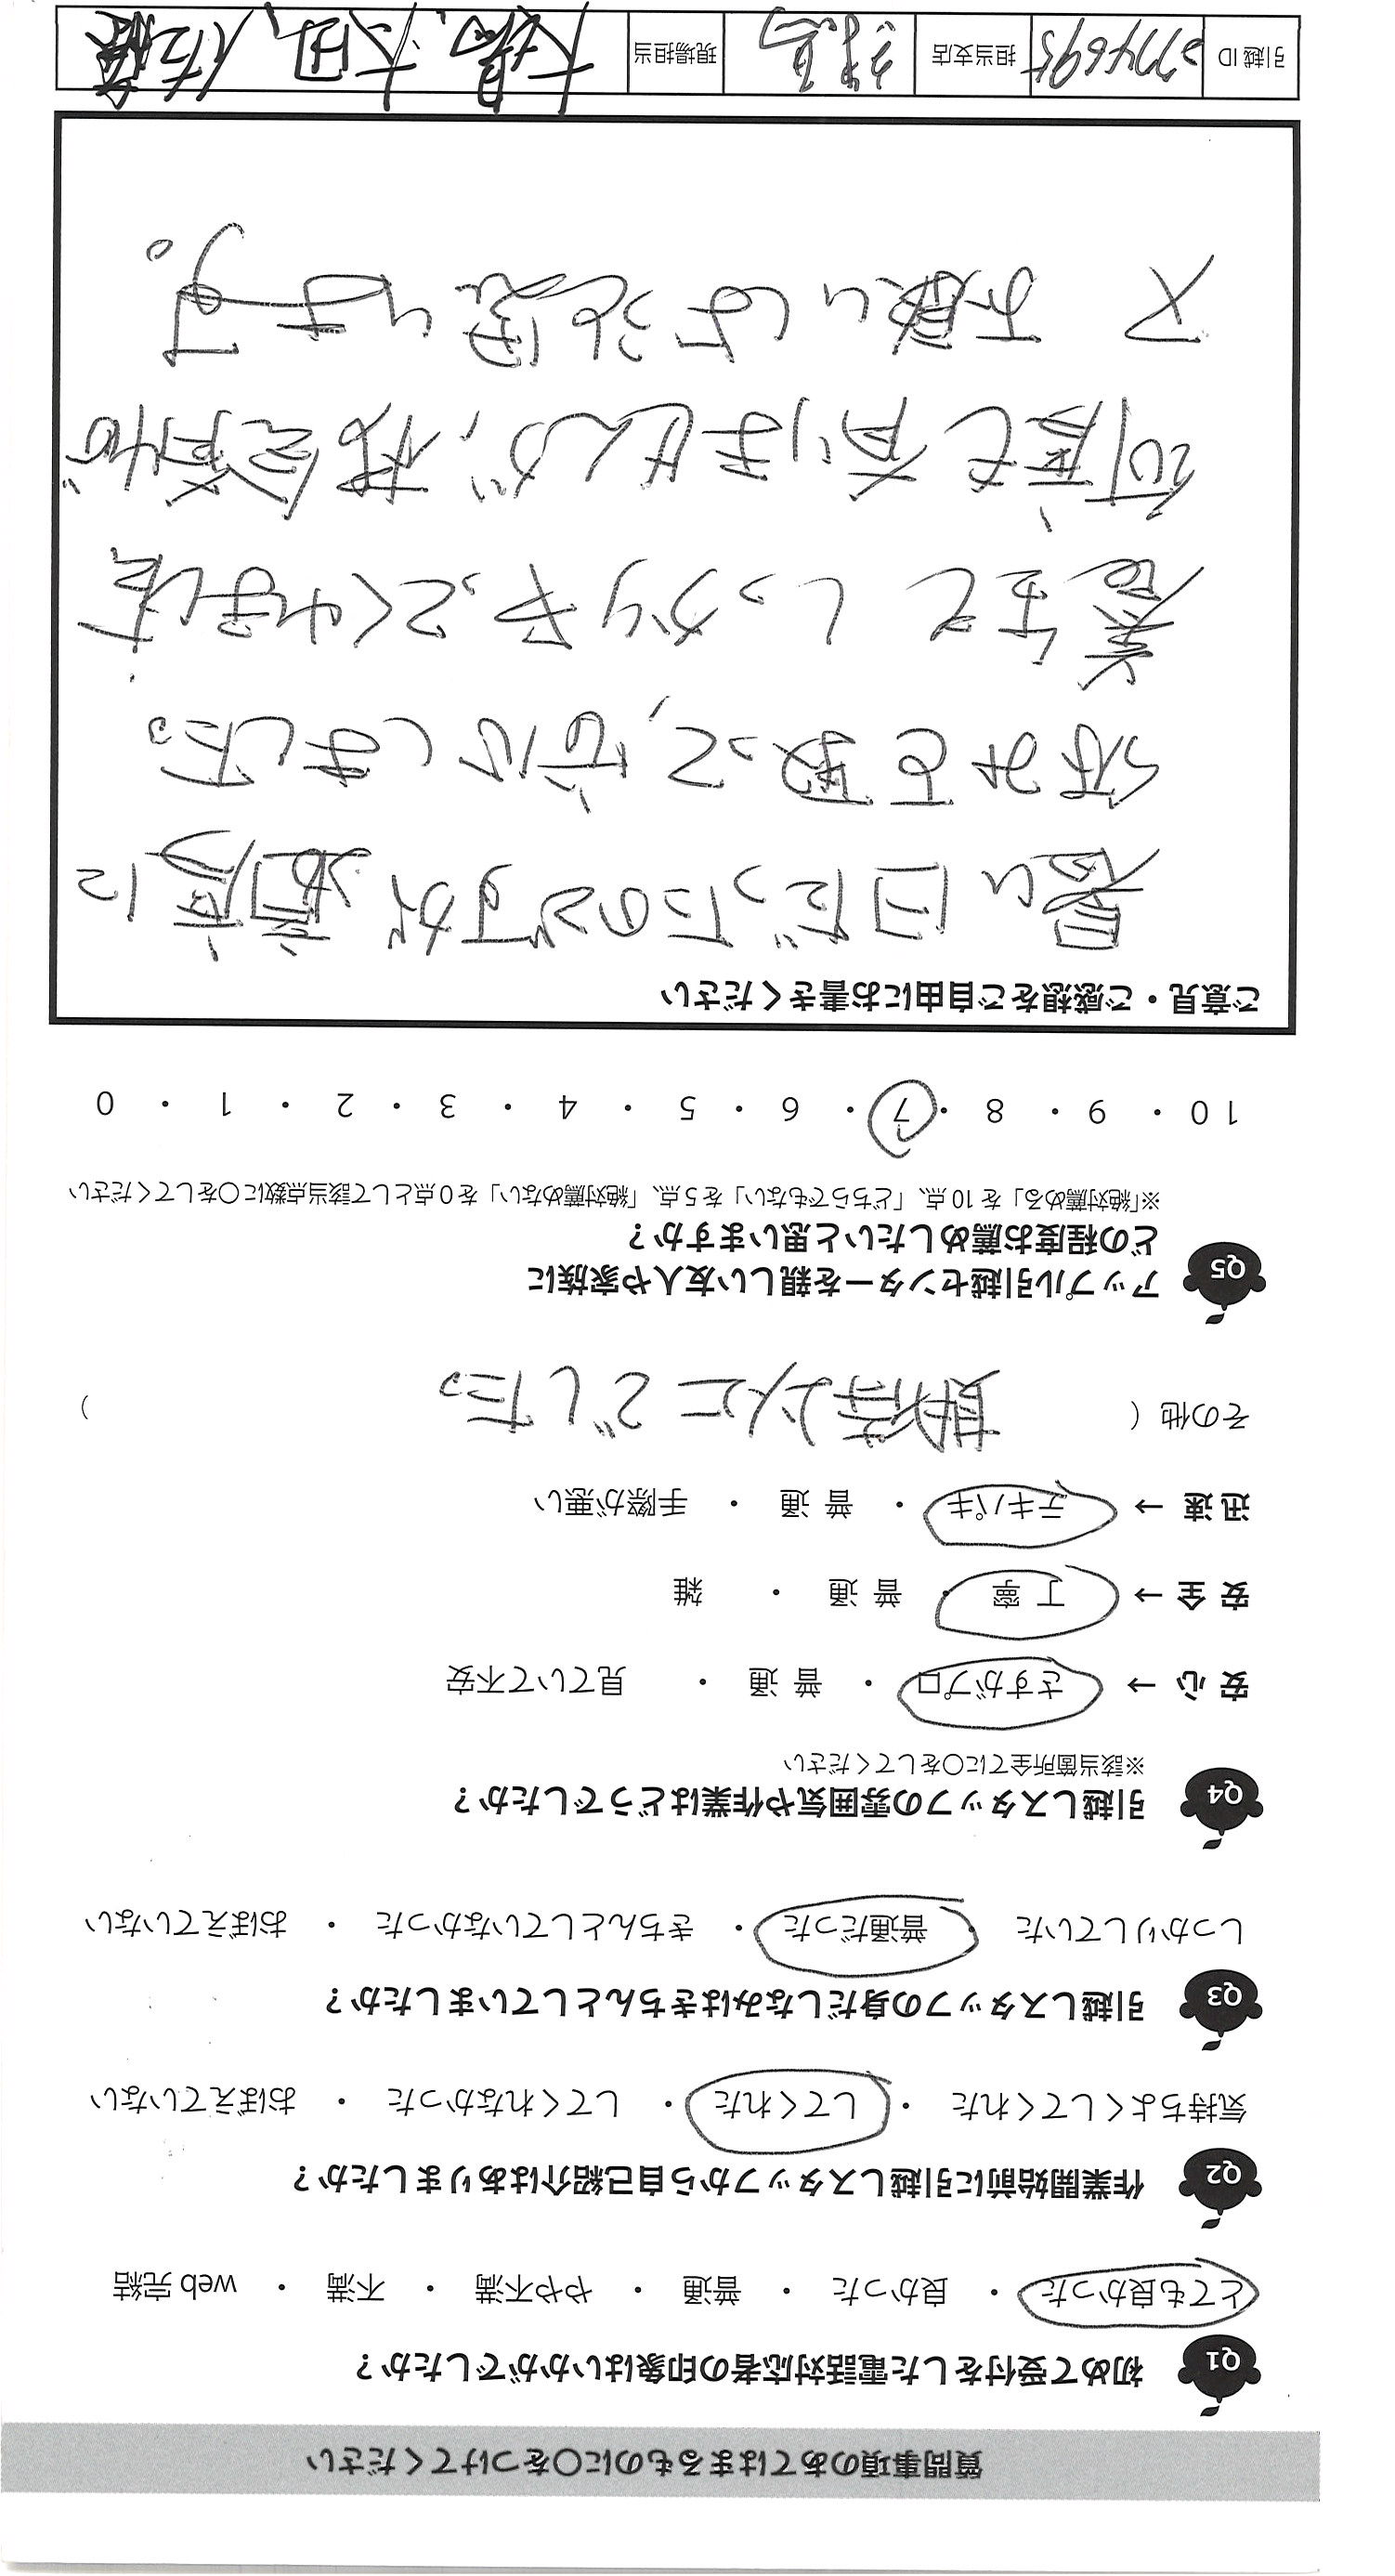 質問事項のあてはまるものに○をつけてください
Q1 初めて受付をした電話対応者の印象はいかがでしたか？
とても良かった ・ 良かった ・ 普通 ・ やや不満 ・ 不満 ・ web 完結
Q2 作業開始前に引越しスタッフから自己紹介はありましたか？
気持ちよくしてくれた ・ してくれた ・ してくれなかった ・ おぼえていない
Q3 引越しスタッフの身だしなみはきちんとしていましたか？
しっかりしていた ・ 普通だった ・ きちんとしていなかった ・ おぼえていない
Q4 引越しスタッフの雰囲気や作業はどうでしたか？
※該当箇所全てに○をしてください
安 心 → さすがプロ ・ 普 通 ・ 見ていて不安
安 全 → 丁 寧 ・ 普 通 ・ 雑
迅 速 → テキパキ ・ 普 通 ・ 手際が悪い
その他 ( 期待以上にでした。 )
Q5 アップル引越センターを親しい友人や家族に
どの程度お薦めしたいと思いますか？
※「絶対薦める」を 10 点、「どちらでもない」を 5 点、「絶対薦めない」を 0 点として該当点数に○をしてください
10 ・ 9 ・ 8 ・ 7 ・ 6 ・ 5 ・ 4 ・ 3 ・ 2 ・ 1 ・ 0
ご意見・ご感想をご自由にお書きください
暑い日だったのですが適度に
休みを取って、安心しました。
養生もしっかりやってくれました
何度も有りませんが、機会有れば
又お願いしようと思います。
引越 ID 2774695 担当支店 現場担当 大場、太田、佐藤